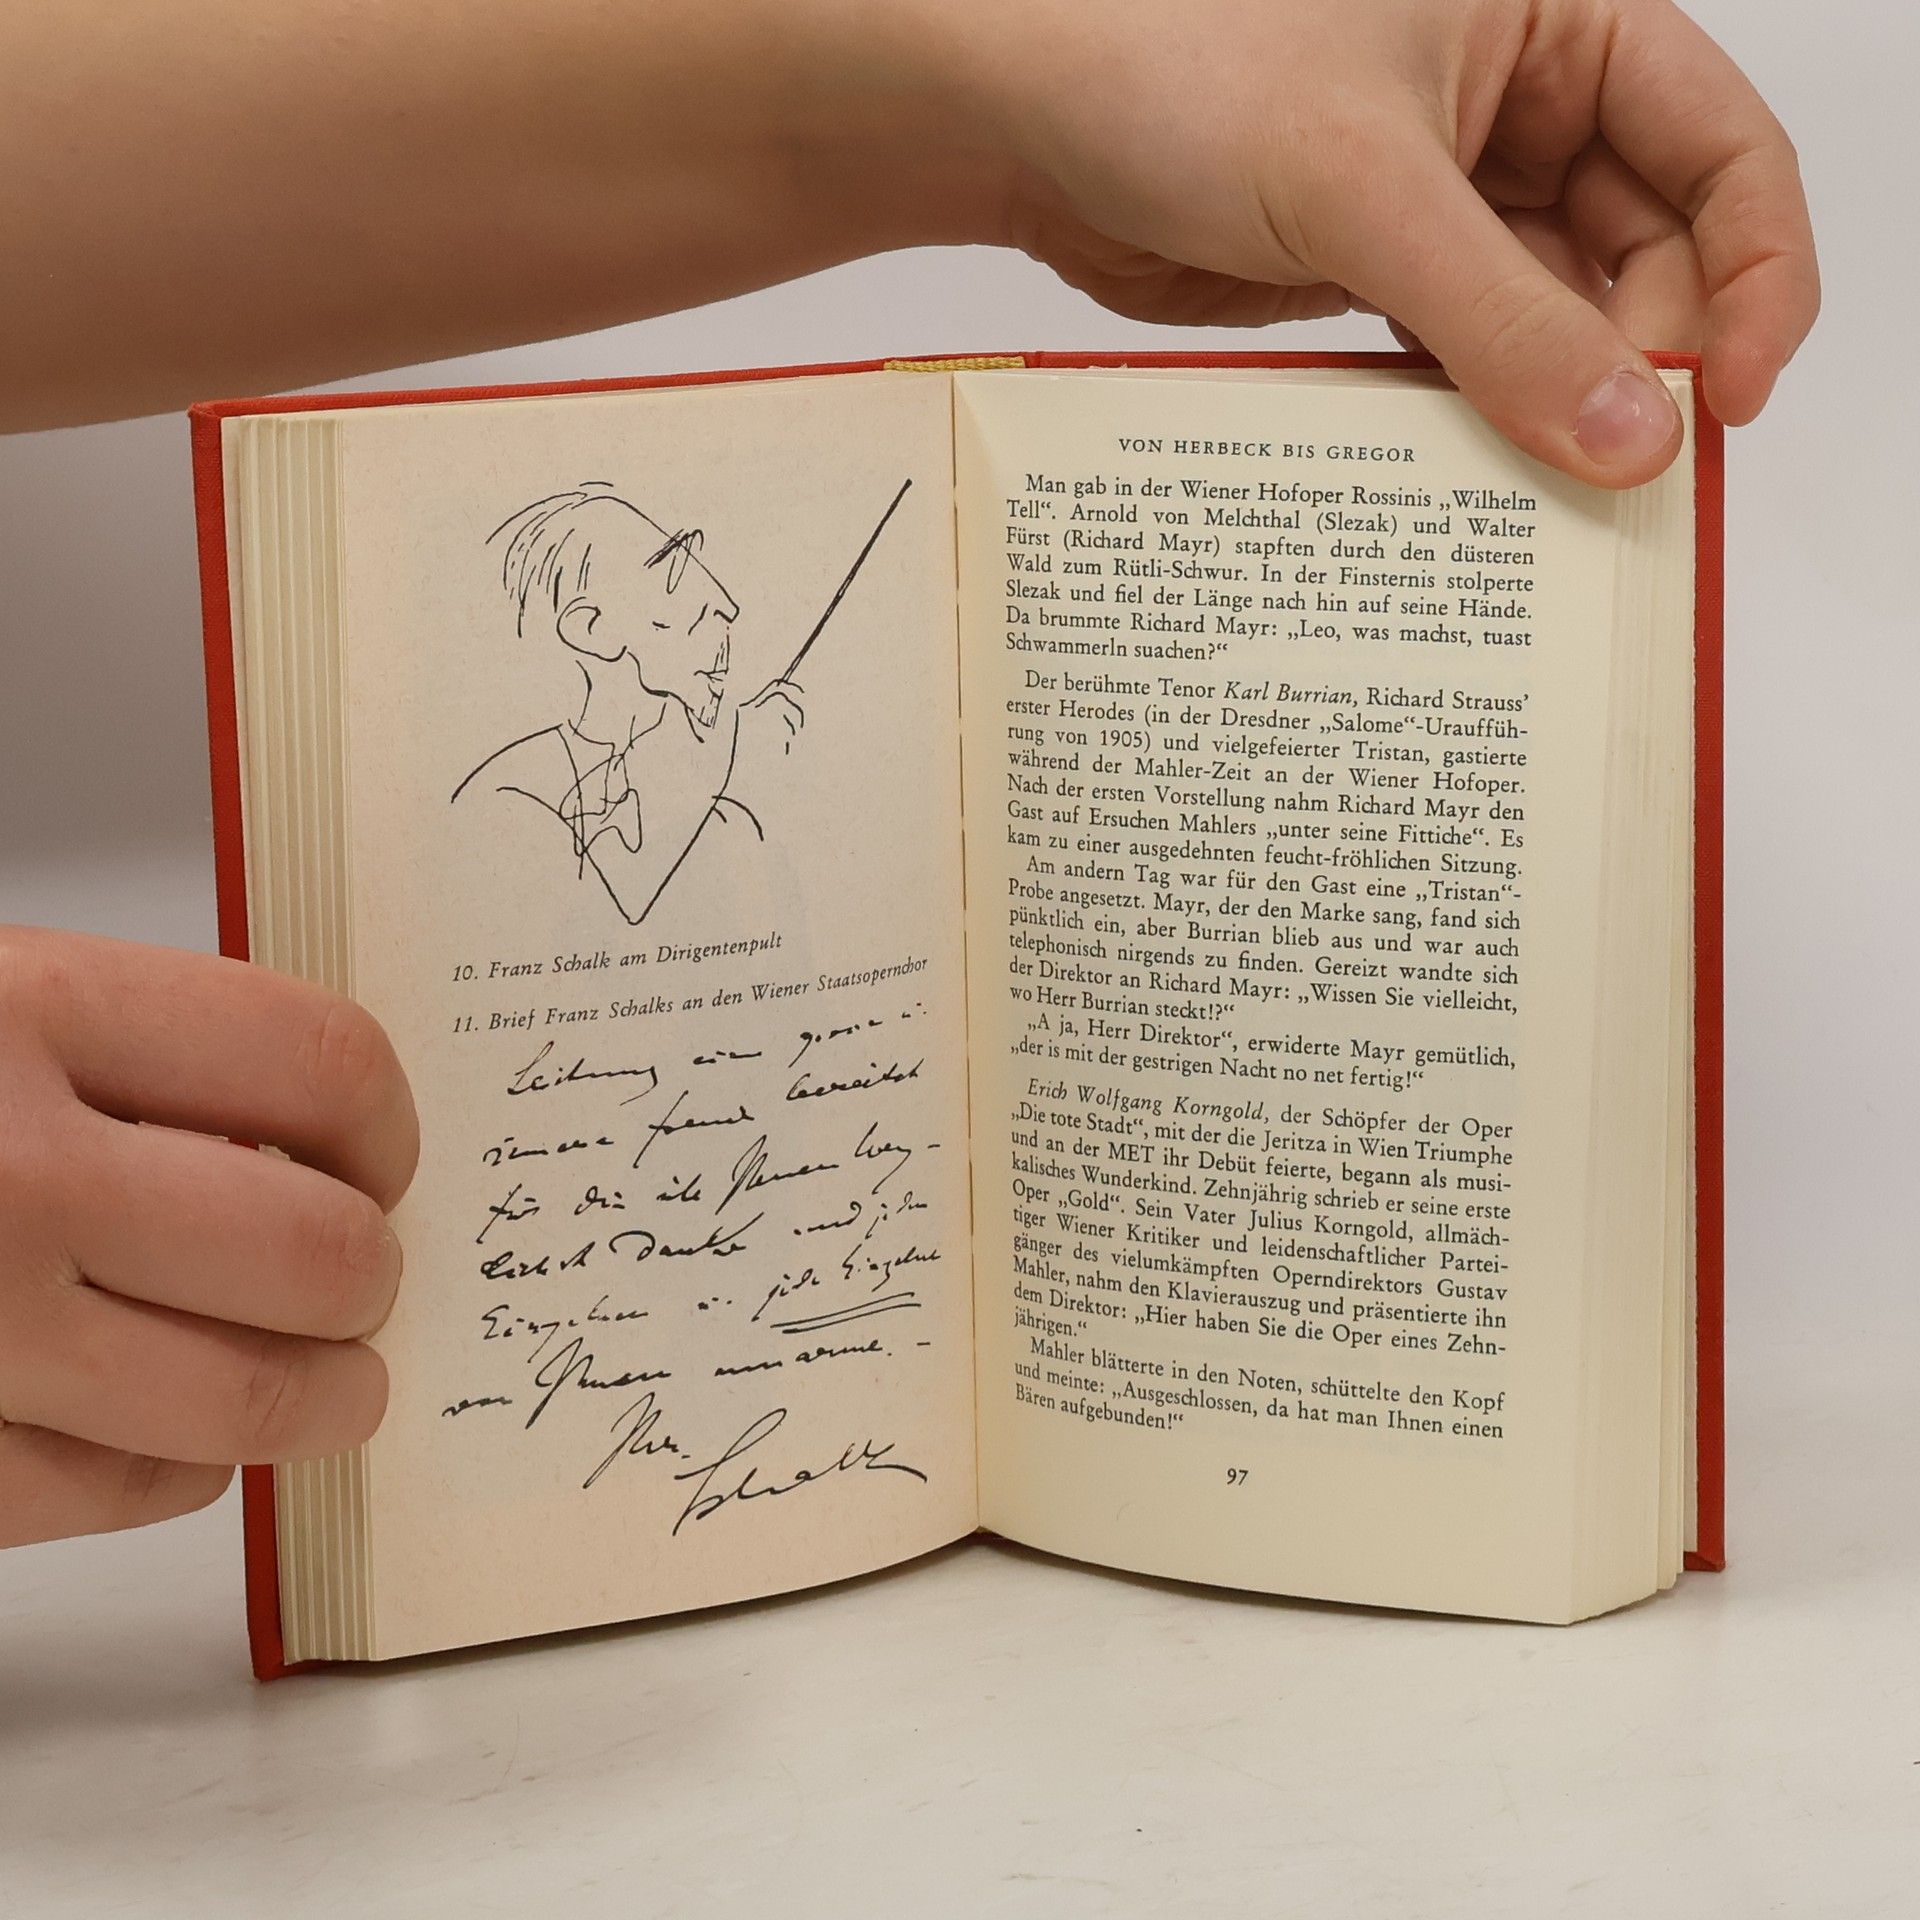 10. Franz Schalk am Dirigentenpult
11. Brief Franz Schalks an den Wiener Staatsopernchor
Leitung eine grosse u.
innere freude bereitet
für die ich Ihnen herz-
lichst danke und jeden
Einzelnen u. jede Einzelne
von Ihnen umarme. –
Ihr
Schalk
VON HERBECK BIS GREGOR
Man gab in der Wiener Hofoper Rossinis „Wilhelm
Tell“. Arnold von Melchthal (Slezak) und Walter
Fürst (Richard Mayr) stapften durch den düsteren
Wald zum Rütli-Schwur. In der Finsternis stolperte
Slezak und fiel der Länge nach hin auf seine Hände.
Da brummte Richard Mayr: „Leo, was machst, tuast
Schwammerln suachen?“
Der berühmte Tenor Karl Burrian, Richard Strauss’
erster Herodes (in der Dresdner „Salome“-Urauffüh-
rung von 1905) und vielgefeierter Tristan, gastierte
während der Mahler-Zeit an der Wiener Hofoper.
Nach der ersten Vorstellung nahm Richard Mayr den
Gast auf Ersuchen Mahlers „unter seine Fittiche“. Es
kam zu einer ausgedehnten feucht-fröhlichen Sitzung.
Am andern Tag war für den Gast eine „Tristan“-
Probe angesetzt. Mayr, der den Marke sang, fand sich
pünktlich ein, aber Burrian blieb aus und war auch
telephonisch nirgends zu finden. Gereizt wandte sich
der Direktor an Richard Mayr: „Wissen Sie vielleicht,
wo Herr Burrian steckt!?“
„A ja, Herr Direktor“, erwiderte Mayr gemütlich,
„der is mit der gestrigen Nacht no net fertig!“
Erich Wolfgang Korngold, der Schöpfer der Oper
„Die tote Stadt“, mit der die Jeritza in Wien Triumphe
und an der MET ihr Debüt feierte, begann als musi-
kalisches Wunderkind. Zehnjährig schrieb er seine erste
Oper „Gold“. Sein Vater Julius Korngold, allmäch-
tiger Wiener Kritiker und leidenschaftlicher Partei-
gänger des vielumkämpften Operndirektors Gustav
Mahler, nahm den Klavierauszug und präsentierte ihn
dem Direktor: „Hier haben Sie die Oper eines Zehn-
jährigen.“
Mahler blätterte in den Noten, schüttelte den Kopf
und meinte: „Ausgeschlossen, da hat man Ihnen einen
Bären aufgebunden!“
97